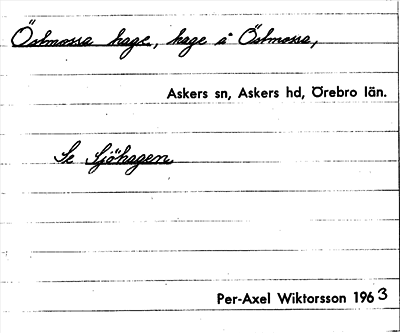 Östmossa hage, hage å Östmossa,
Askers sn, Askers hd, Örebro län.
Se Sjöhagen
Per-Axel Wiktorsson 1963